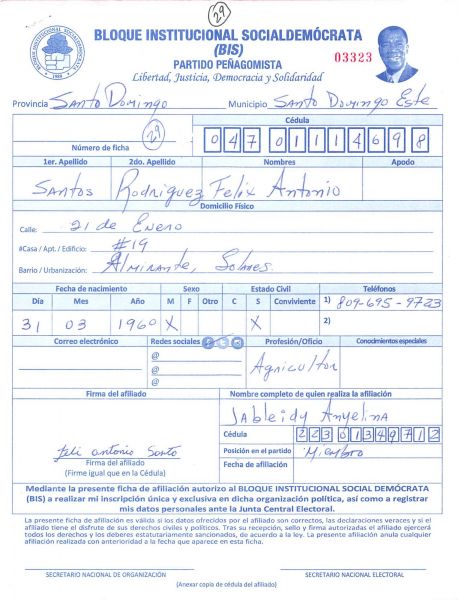 29
BLOQUE INSTITUCIONAL SOCIALDEMÓCRATA
(BIS)
PARTIDO PEÑAGOMISTA
Libertad, Justicia, Democracia y Solidaridad
03323
Provincia Santo Domingo Municipio Santo Domingo Este
Número de ficha 29 Cédula 04701114698
1er. Apellido 2do. Apellido Nombres Apodo
Santos Rodriguez Felix Antonio
Domicilio Físico
Calle: 21 de Enero
#Casa / Apt. / Edificio: #19
Barrio / Urbanización: Almirante, Solares
Fecha de nacimiento Sexo Estado Civil Teléfonos
Día Mes Año M F Otro C S Conviviente 1) 809-695-9723
31 03 1960 X X 2)
Correo electrónico Redes sociales Profesión/Oficio Conocimientos especiales
@
@ Agricultor
@
Firma del afiliado Nombre completo de quien realiza la afiliación
Jableidy Anyelina
Cédula 22301349712
feli antonio Santo Posición en el partido Miembro
Firma del afiliado Fecha de afiliación
(Firme igual que en la Cédula)
Mediante la presente ficha de afiliación autorizo al BLOQUE INSTITUCIONAL SOCIAL DEMÓCRATA
(BIS) a realizar mi inscripción única y exclusiva en dicha organización política, así como a registrar
mis datos personales ante la Junta Central Electoral.
La presente ficha de afiliación es válida si los datos ofrecidos por el afiliado son correctos, las declaraciones veraces y si el
afiliado tiene el disfrute de sus derechos civiles y políticos. Tras su recepción, sello y firma autorizadas el afiliado ejercerá
todos los derechos y los deberes estatutariamente sancionados, de acuerdo a la ley. La presente afiliación anula cualquier
afiliación realizada con anterioridad a la fecha que aparece en esta ficha.
SECRETARIO NACIONAL DE ORGANIZACIÓN SECRETARIO NACIONAL ELECTORAL
(Anexar copia de cédula del afiliado)